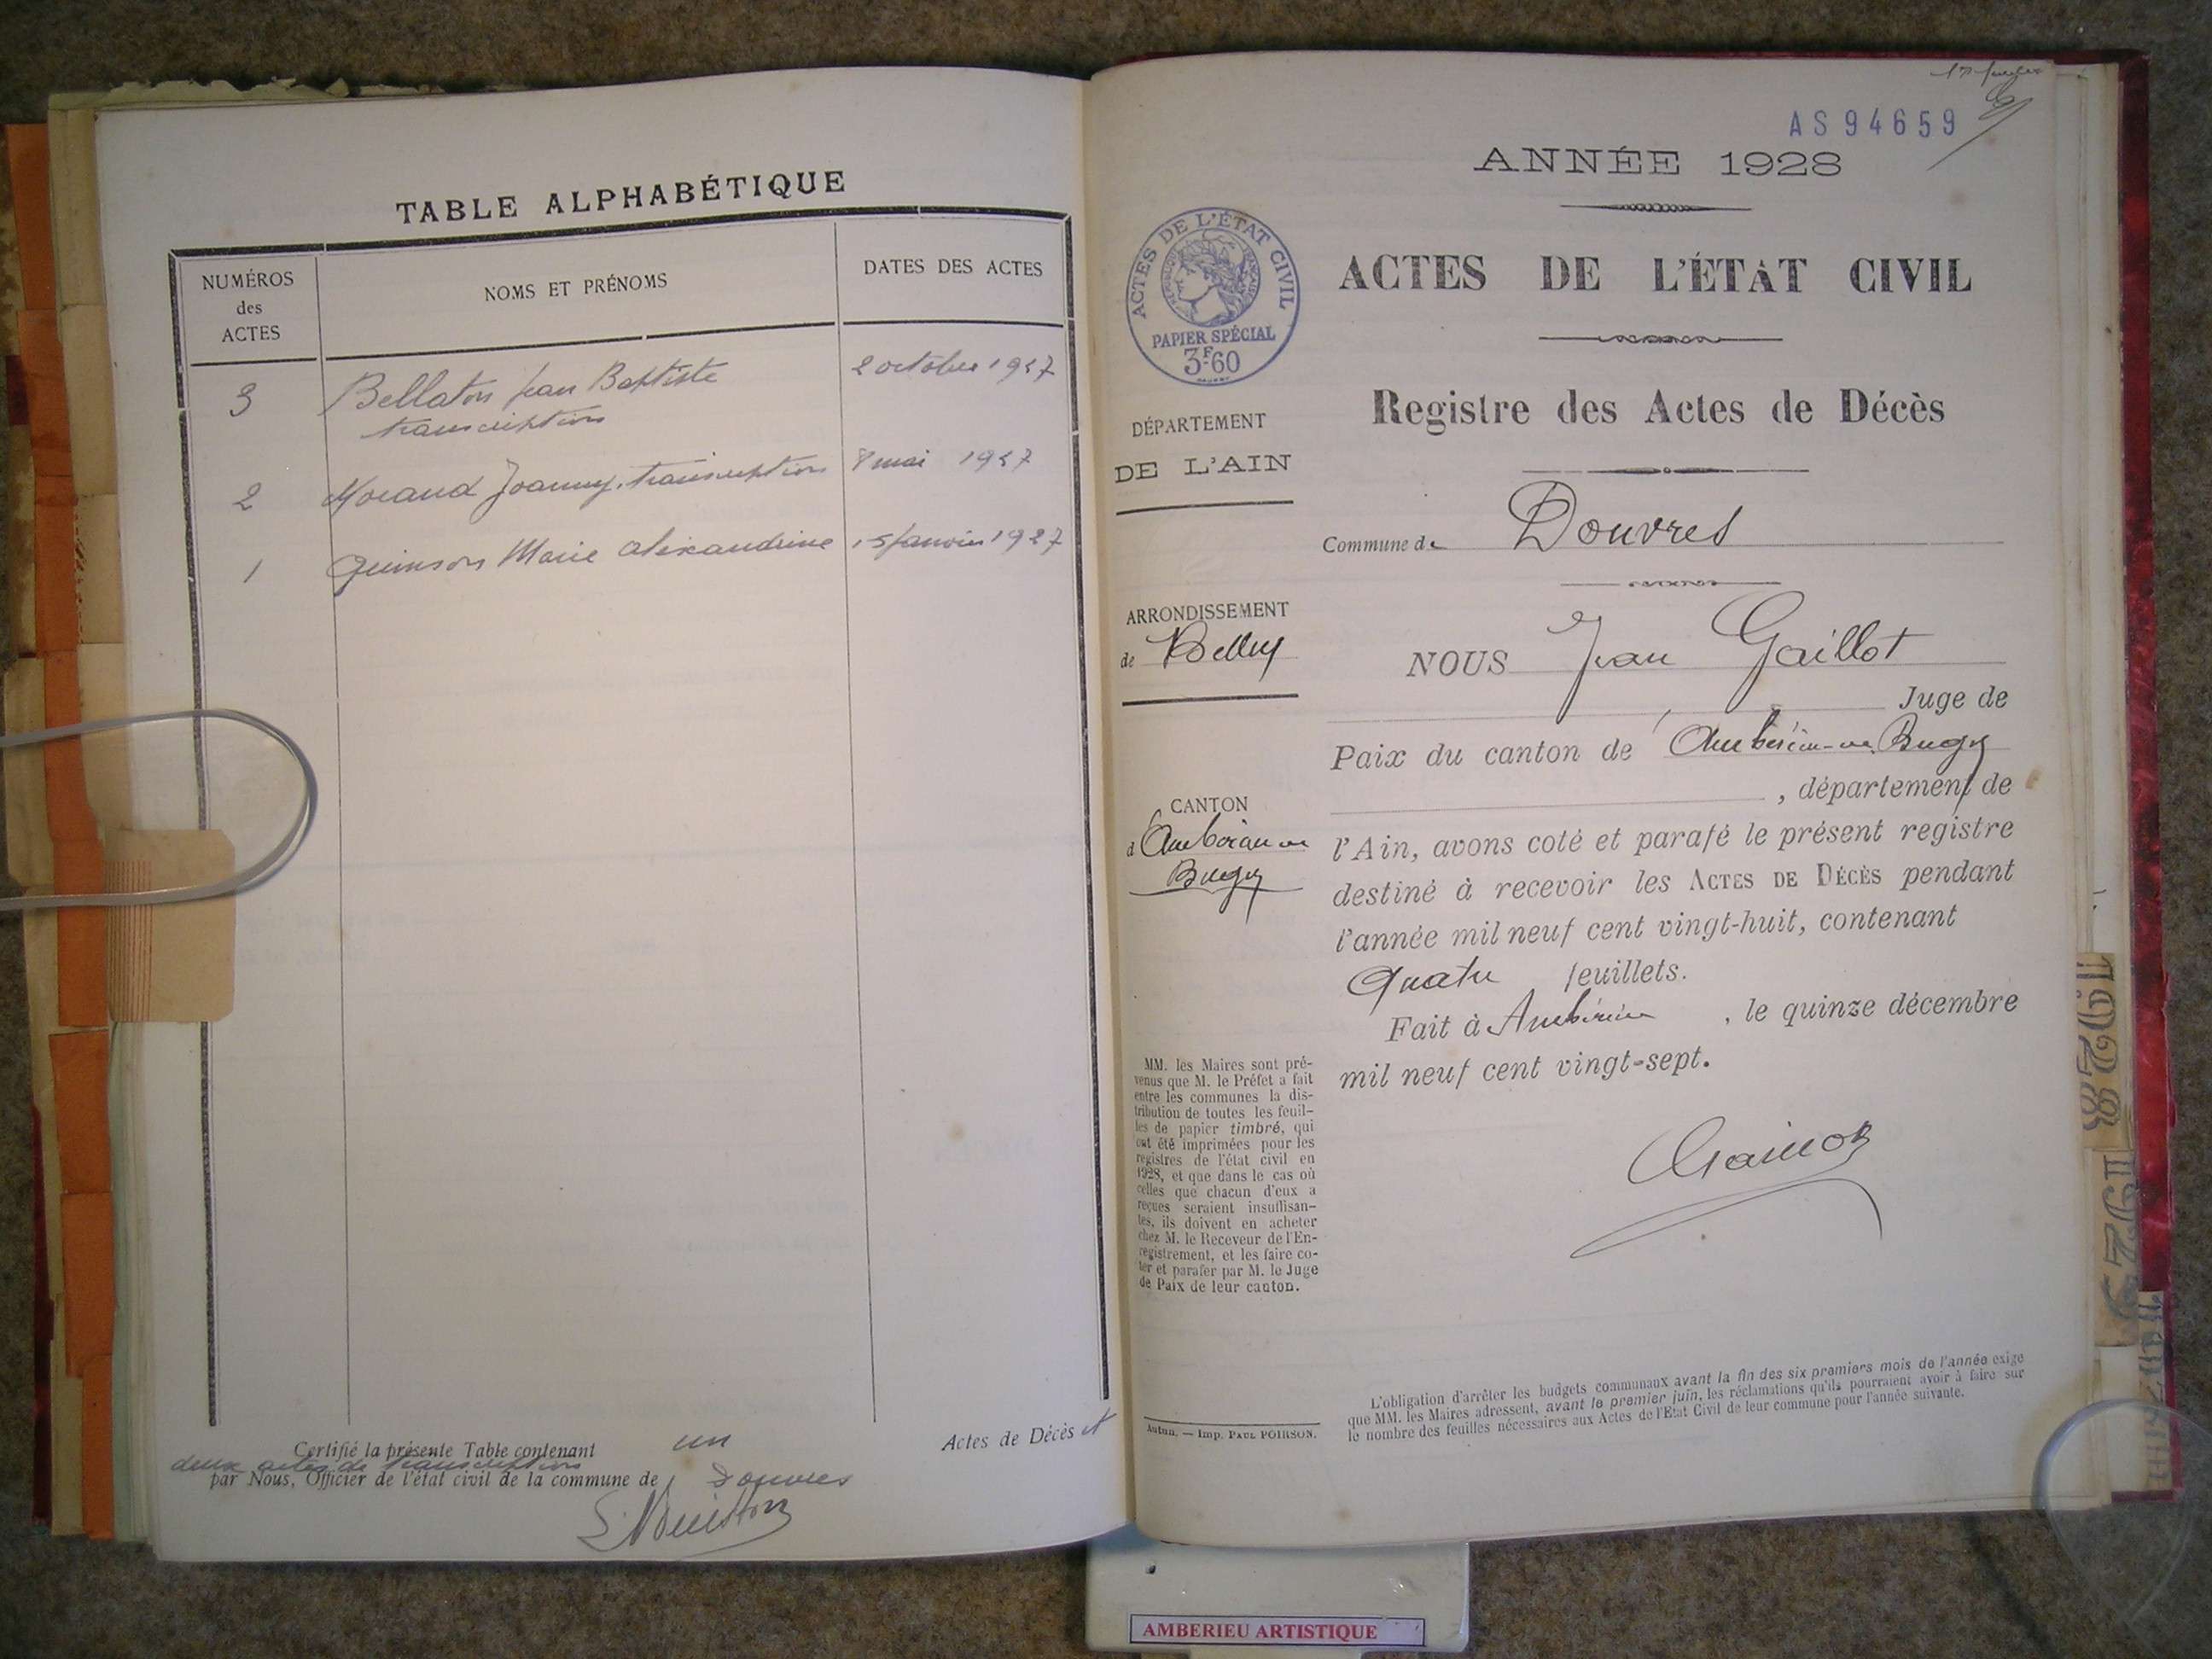 TABLE ALPHABÉTIQUE
NUMÉROS
des
ACTES
NOMS ET PRÉNOMS
DATES DES ACTES
3 Bellaton Jean Baptiste 2 octobre 1927
transcription
2 Morand Joanny, transcription 8 mai 1927
1 Quinson Marie Alexandrine 15 janvier 1927
Certifié la présente Table contenant un Actes de Décès et
deux actes de transcriptions
par Nous, Officier de l'état civil de la commune de Douvres
AS94659
ANNÉE 1928
ACTES DE L'ÉTAT CIVIL
RÉPUBLIQUE FRANÇAISE
PAPIER SPÉCIAL
3F60
ACTES DE L'ÉTAT CIVIL
Registre des Actes de Décès
DÉPARTEMENT
DE L'AIN
Commune de Douvres
ARRONDISSEMENT
de Belley
CANTON
d'Ambérieu en
Bugey
NOUS Jean Gaillot
Juge de
Paix du canton de Ambérieu-en-Bugey
, département de
l'Ain, avons coté et parafé le présent registre
destiné à recevoir les ACTES DE DÉCÈS pendant
l'année mil neuf cent vingt-huit, contenant
Quatre feuillets.
Fait à Ambérieu, le quinze décembre
mil neuf cent vingt-sept.
MM. les Maires sont pré-
venus que M. le Préfet a fait
entre les communes la dis-
tribution de toutes les feuil-
les de papier timbré, qui
ont été imprimées pour les
registres de l'état civil en
1928, et que dans le cas où
celles que chacun d'eux a
reçues seraient insuffisan-
tes, ils doivent en acheter
chez M. le Receveur de l'En-
registrement, et les faire co-
ter et parafer par M. le Juge
de Paix de leur canton.
Autun. — Imp. PAUL POIRSON.
L'obligation d'arrêter les budgets communaux avant la fin des six premiers mois de l'année exige
que MM. les Maires adressent, avant le premier juin, les réclamations qu'ils pourraient avoir à faire sur
le nombre des feuilles nécessaires aux Actes de l'Etat Civil de leur commune pour l'année suivante.
AMBERIEU ARTISTIQUE